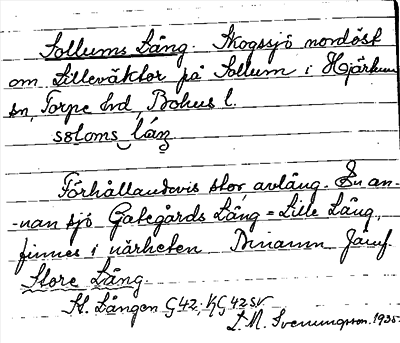 Sollums Lång. Skogssjö nordöst
om Lilleväktor på Sollum i Hjärtum
sn, Torpe hd, Bohus l.
soloms lán
Förhållandevis stor avlång. En an-
-nan sjö Gategårds Lång = Lille Lång,
finnes i närheten Binamn Jämf.
Store Lång.
St. Lången G 42; 1/2 G 42 SV
L. M. Svenungsson. 1935.